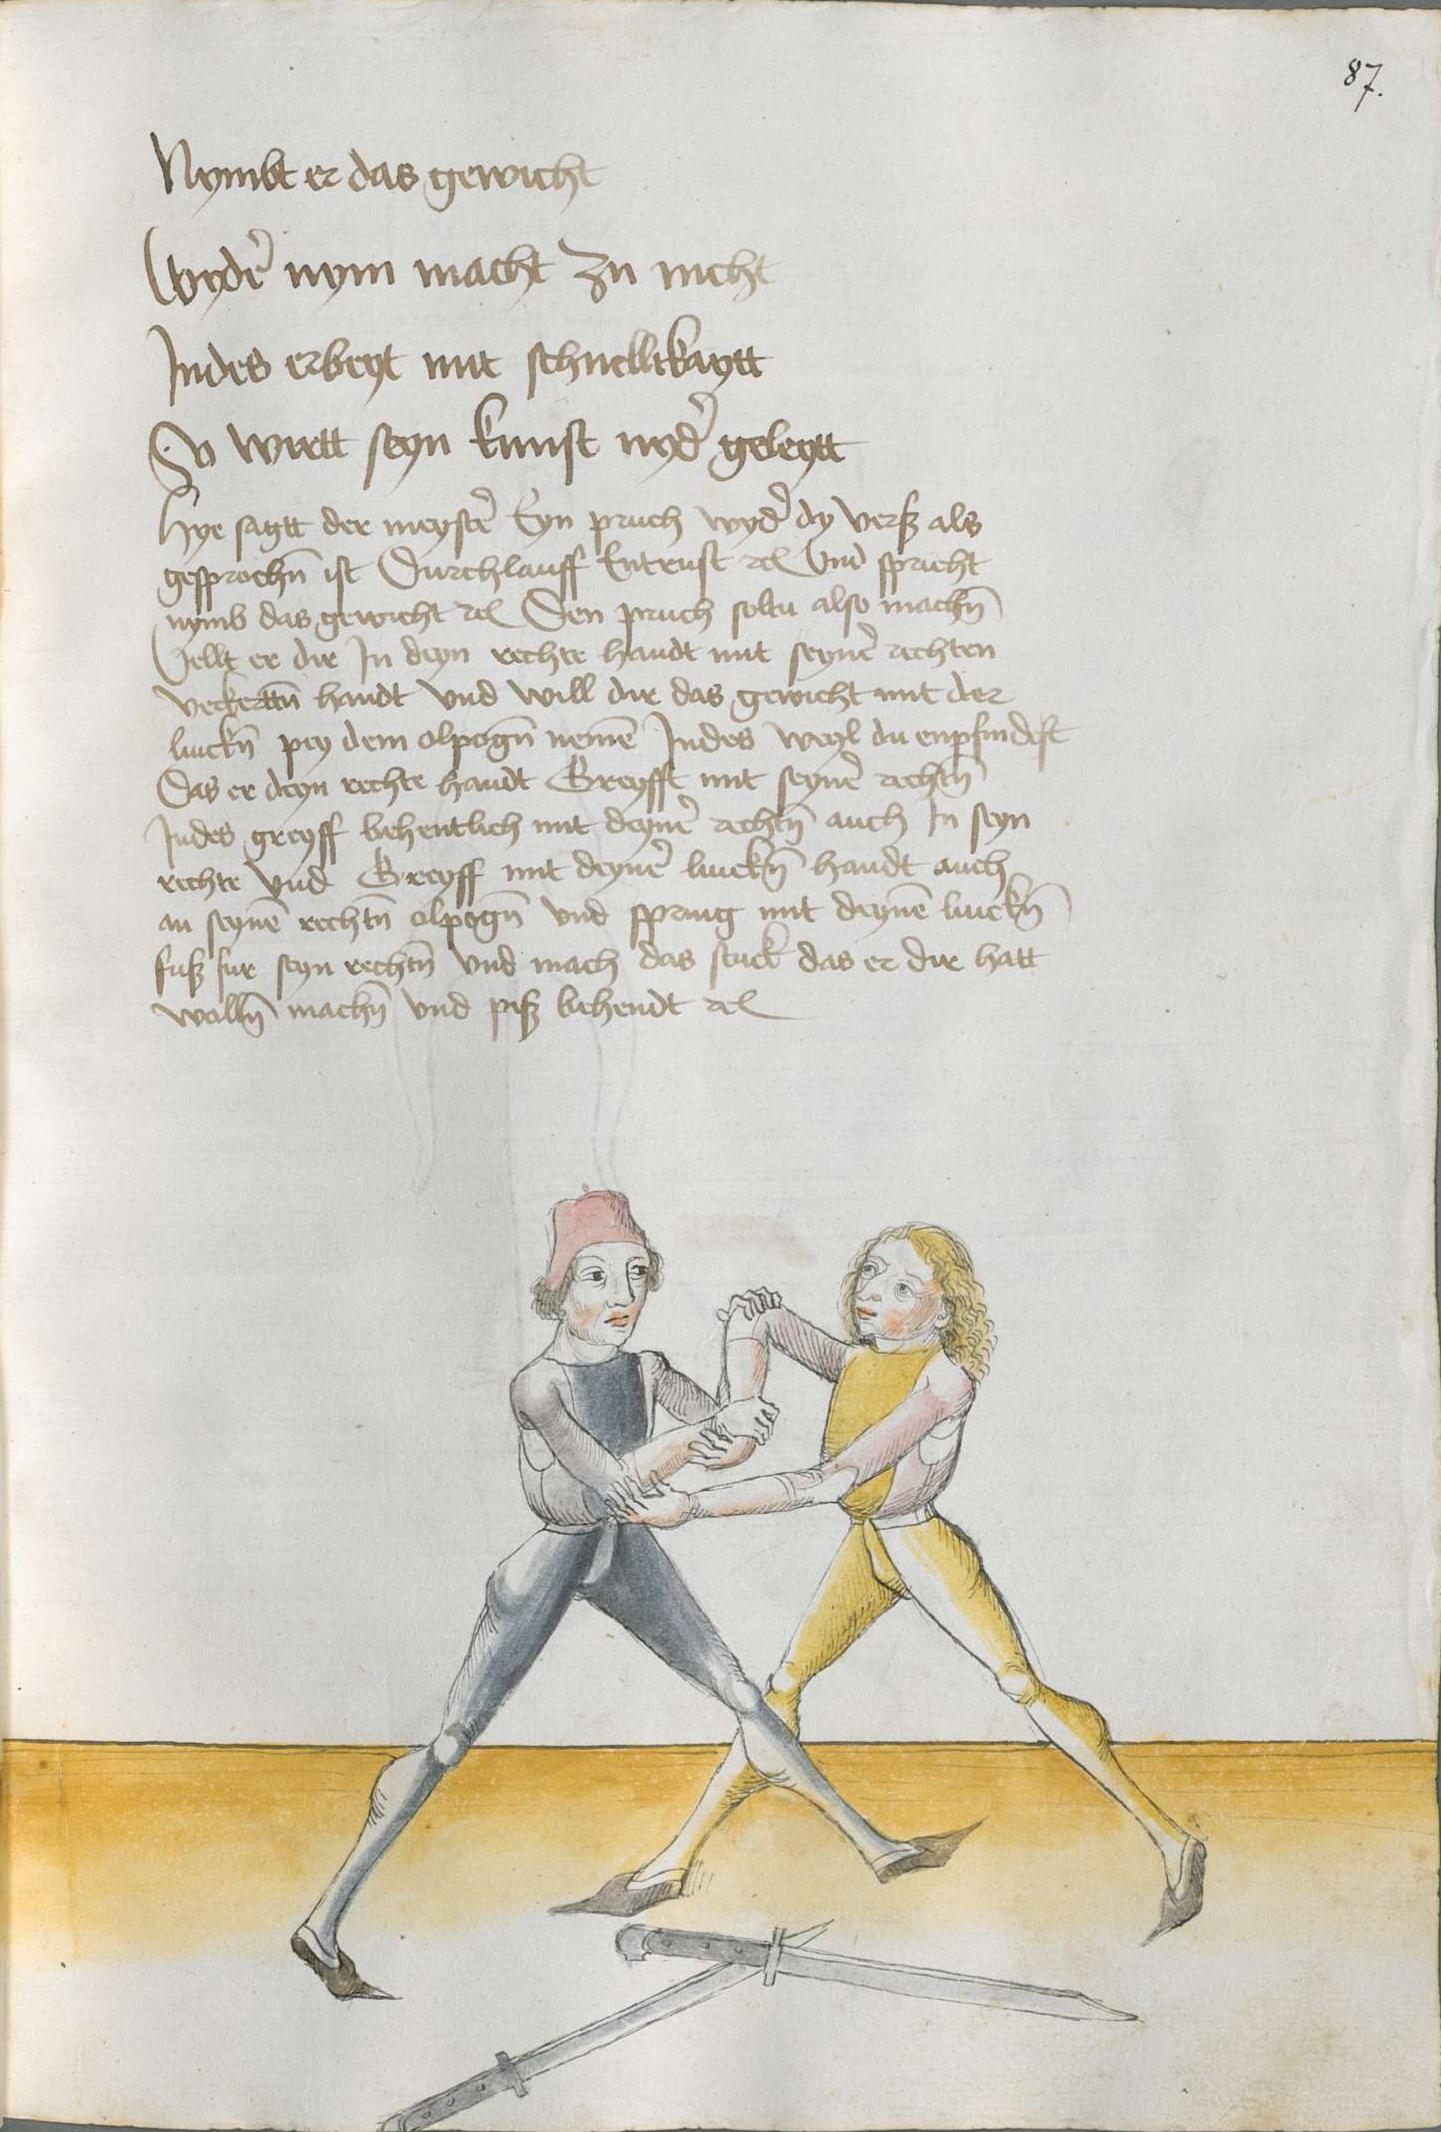 87.
Nymbt er das gewicht
Wyder̄ nym macht zu nicht
Indes erbeyt mit schnellikaytt
So wirtt seyn kunst nyder̄ geleytt
Hye sagtt der meyster̄ Eyn pruch wyder̄ dy verß als
gesprochn̄ ist Durchlauff Entrust ꝛcͣ Vnd̄ spricht
nymb das gewicht ꝛcͣ Den pruch soltu also machn̄
Vellt er dir In deyn rechte handt mit seyner̄ rechten
verkerttn̄ handt vnd will dir das gewicht mit der
linckn̄ pey dem olpogn̄ nemē Indes weyl du enpfindest
Das er deyn rechte handt Greyfft mit seyner̄ rechtn̄
Indes greyff behentlich mit deyner̄ rechtn̄ auch In seyn
rechte vnd Greyff mit deyner̄ linckn̄ handt auch
an seynē rechtn̄ olpogn̄ vnd spring mit deynē linckn̄
fuß fur seyn rechtn̄ vnd mach das stuck das er dir hatt
wolln̄ machn̄ vnd piß behendt ꝛcͣ